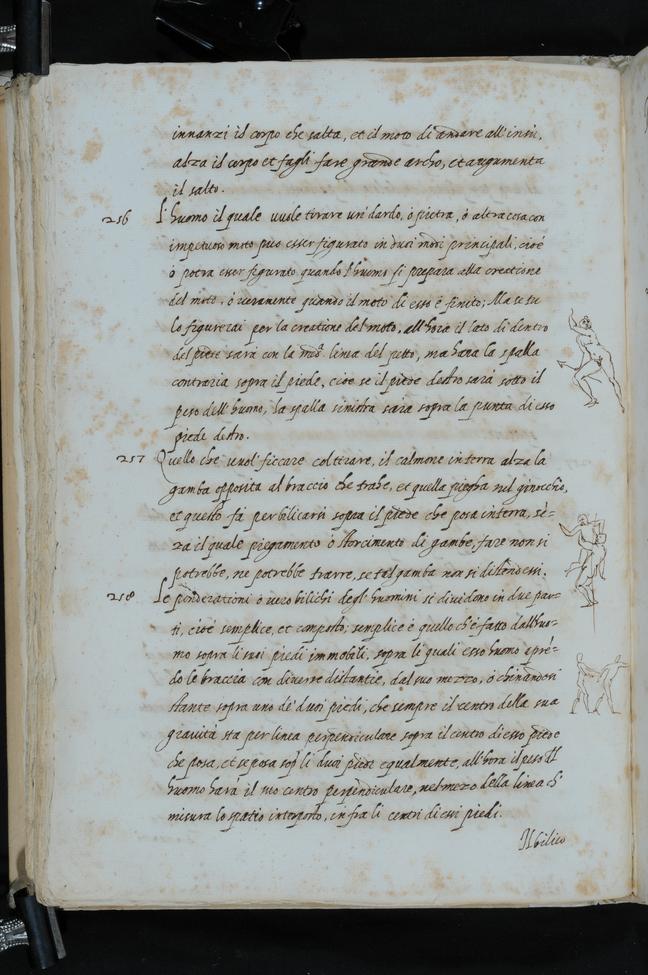 innanzi il corpo che salta, et il moto di andare all'insù,
alza il corpo et fagli fare grande archo, et augumenta
il salto.
256 L'huomo il quale vuole tirare un' dardo, ò pietra, ò altra cosa con
impetuoso moto puo esser figurato in duoi modi principali, cioè
ò potra esser figurato quando l'huomo si prepara alla creatione
del moto, ò veramente quando il moto di esso è finito; Ma se tu
lo figurerai per la creatione del moto, all'hora il lato di dentro
del piede sarà con la med.ª linea del petto, ma hara la spalla
contraria sopra il piede, cioe se il piede destro sarà sotto il
peso dell'huomo, la spalla sinistra sarà sopra la punta di esso
piede destro.
257 Quello che vuol' ficcare col tirare, il calmone in terra alza la
gamba opposita al braccio che trahe, et quella piegha nel ginocchio,
et questo fà per bilicarsi sopra il piede che posa in terra, sen=
za il quale piegamento ò storcimento di gambe, fare non si
potrebbe, ne potrebbe trarre, se tal gamba non si distendessi.
258 Le ponderationi ò vero bilichi degl'huomini si dividono in due par=
ti, cioè semplice, et composto; semplice è quello ch'è fatto dall'huo=
mo sopra li suoi piedi immobili, sopra li quali esso huomo aprē=
do le braccia con diverse distantie, dal suo mezzo, ò chinandosi
stante sopra uno de' duoi piedi, che sempre il centro della sua
gravità sta per linea perpendiculare sopra il centro di esso piede
che posa, et se posa sop.ª li duoi piedi equalmente, all'hora il peso dl'
huomo harà il suo centro perpendiculare, nel mezo della linea ch'
misura lo spatio interposto, in fra li centri di essi piedi.
Il bilico